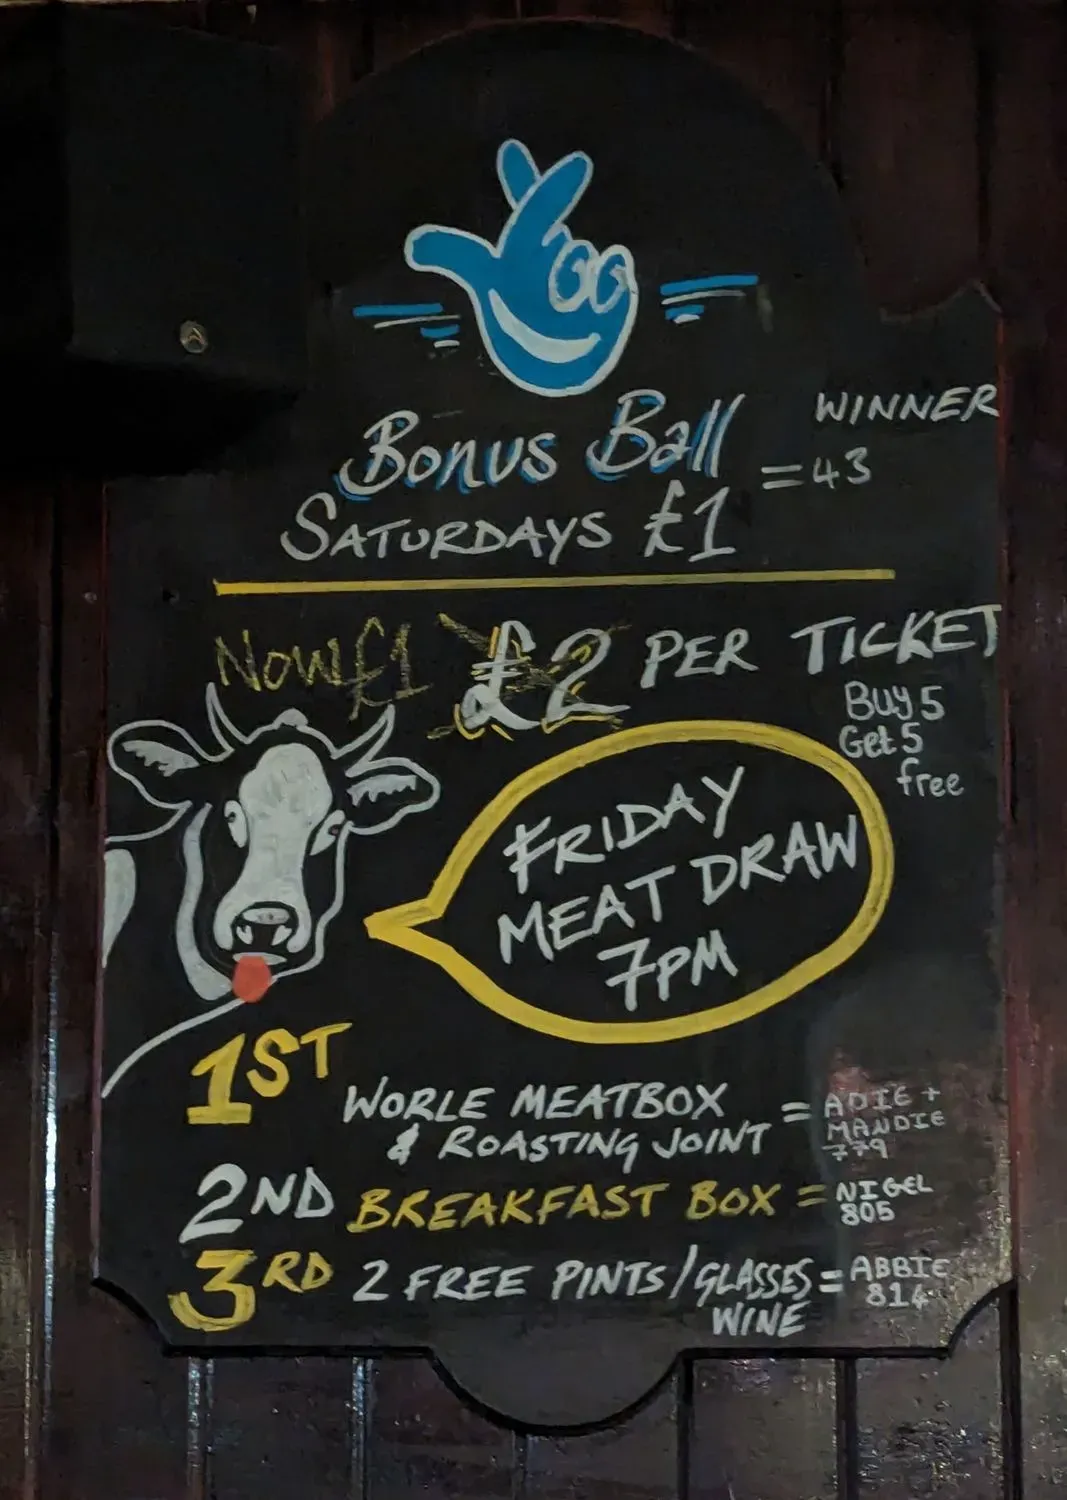 Bonus Ball
WINNER
= 43
SATURDAYS £1
Now £1 £2 PER TICKET
Buy 5
Get 5
free
FRIDAY
MEAT DRAW
7PM
1ST
WORLE MEATBOX
& ROASTING JOINT =
ADIE +
MANDIE
779
2ND BREAKFAST BOX =
NIGEL
805
3RD 2 FREE PINTS / GLASSES =
WINE
ABBIE
814